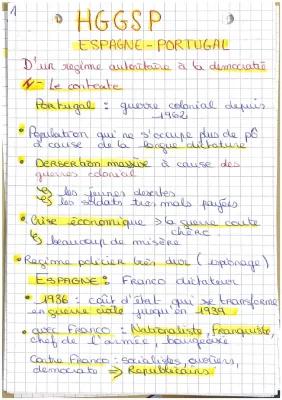 1
HGGSP
ESPAGNE-PORTUGAL
D'un regime autoritaire à la democratie
- Le contexte
Portugal : guerre colonial depuis
1962
• Population qui ne s'occupe plus de pô
à cause de la longue dictature
• Dersertion massive à cause des
guerres colonial
↳ les jeunes desertes
↳ les soldats tres mals payées
• Crise économique > la guerre coute
chère
↳ beaucoup de misère
• Regime policier très dur (espionage)
ESPAGNE: Franco dictateur
• 1936 : coût d'état qui se transforme
en guerre civile jusqu'en 1939
• avec Franco : Nationaliste, franquiste,
chef de l'armée, bourgeoise
Contre Franco : socialistes, ouvriers,
democrate => Republicains